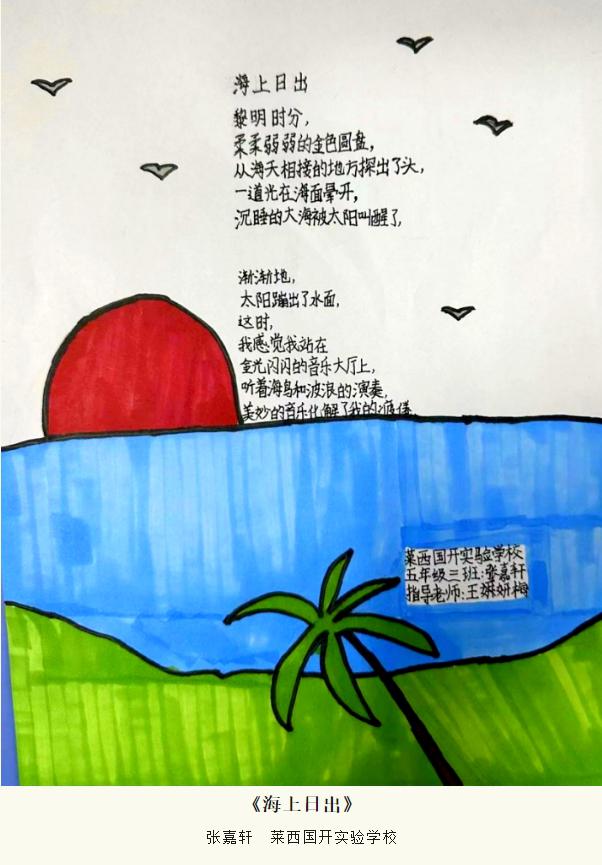 海上日出
黎明时分,
柔柔弱弱的金色圆盘,
从海天相接的地方探出了头,
一道光在海面晕开,
沉睡的大海被太阳叫醒了,
渐渐地,
太阳蹦出了水面,
这时,
我感觉我站在
金光闪闪的音乐大厅上,
听着海鸟和波浪的演奏,
美妙的音乐化解了我的疲倦.
莱西国开实验学校
五年级三班:张嘉轩
指导老师:王 妍梅
《海上日出》
张嘉轩 莱西国开实验学校